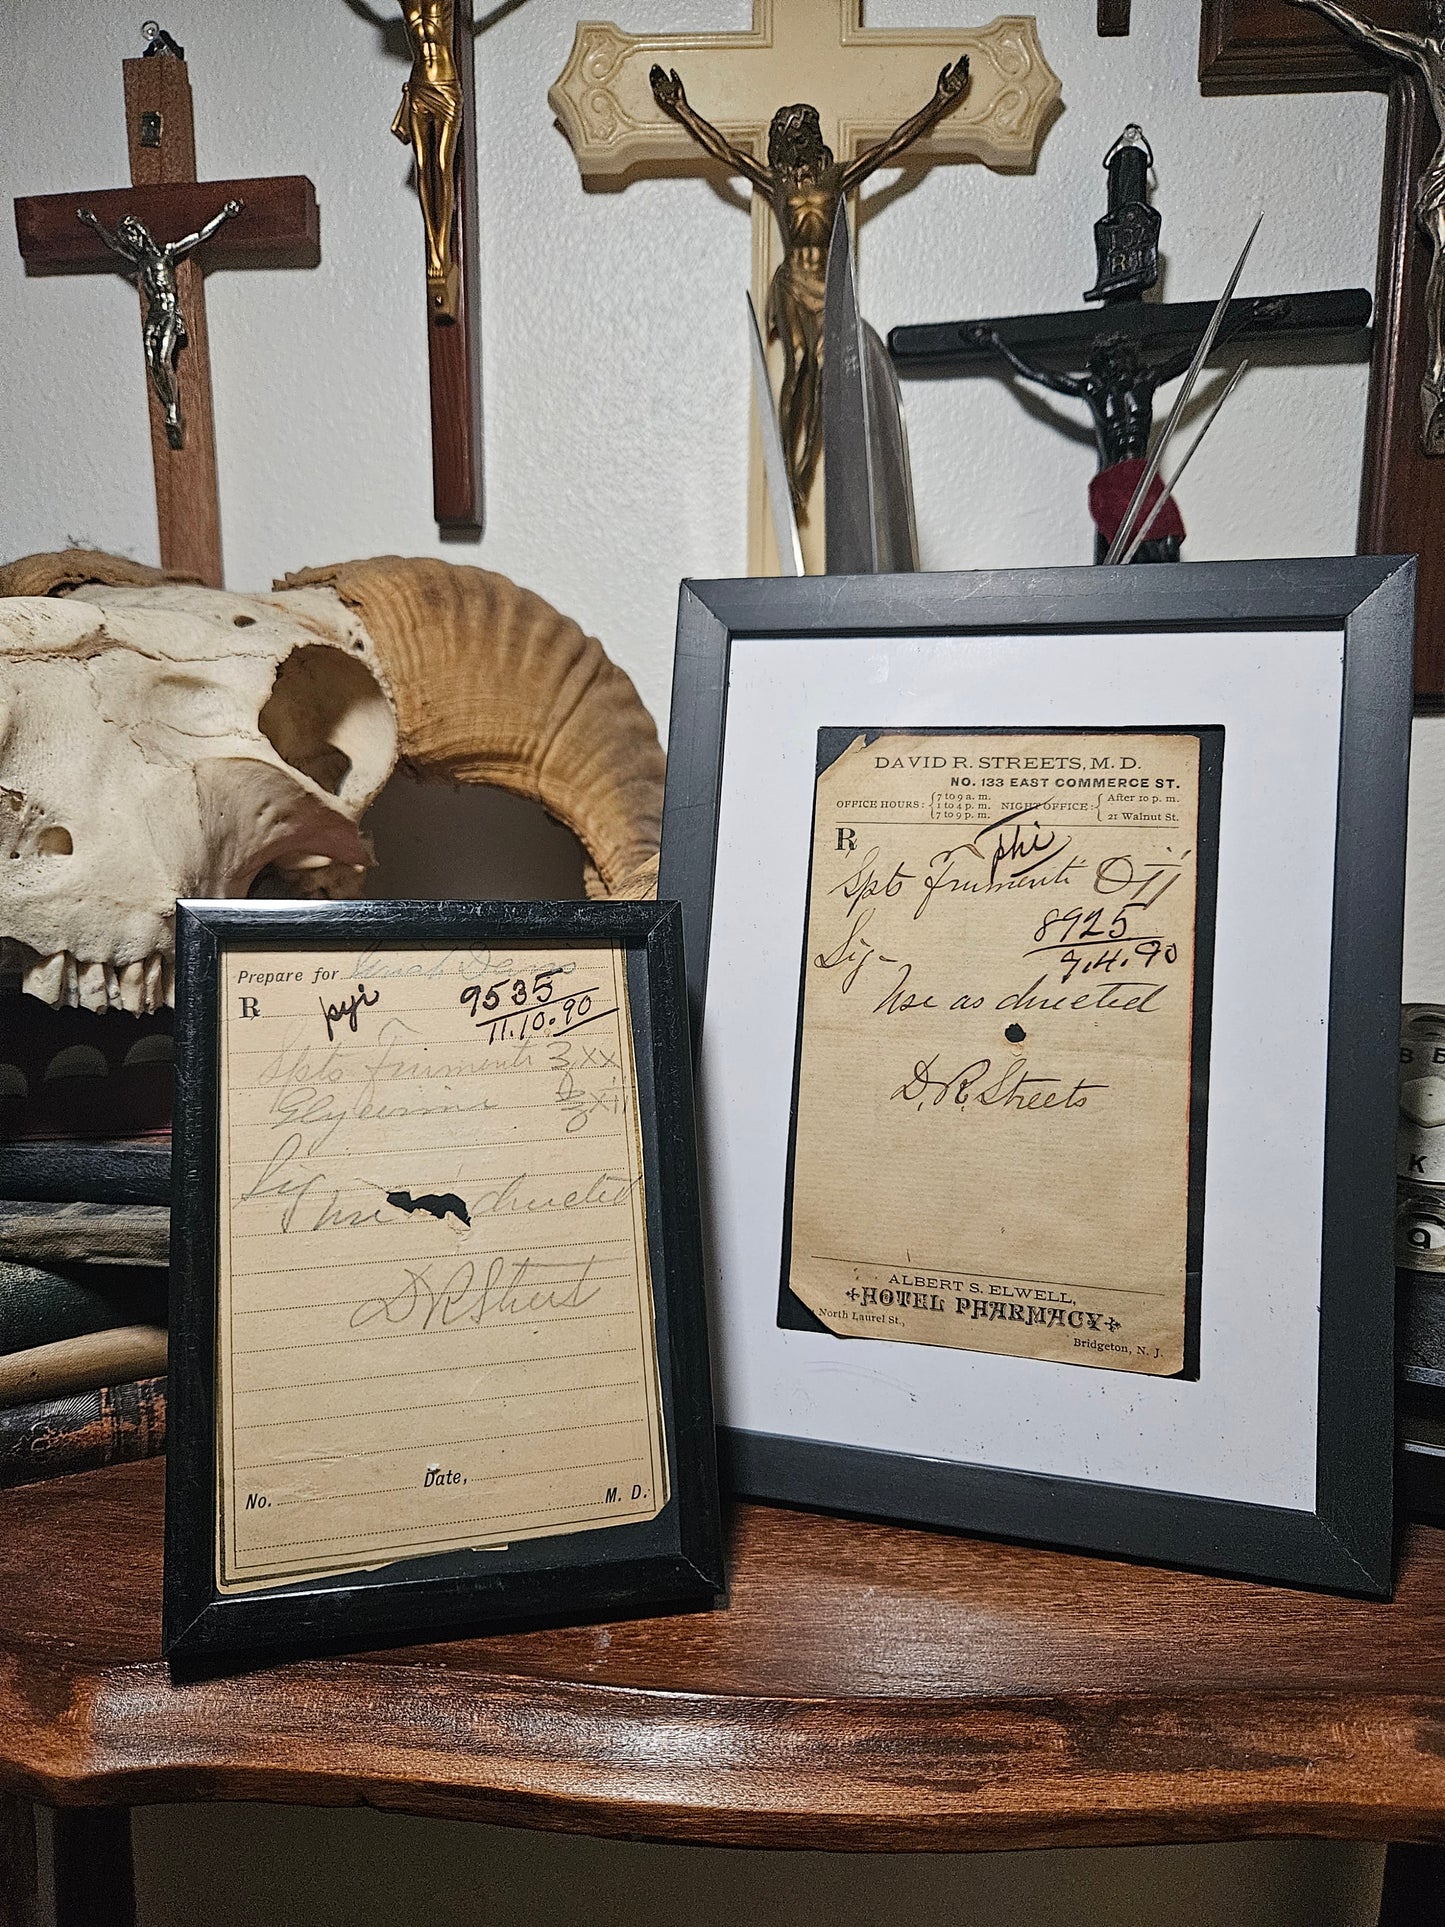 Prepare for Davis
℞ pyi 9535
11.10.90
Spts Frumenti ℥xx
Glycerine ℥xii
Sig
Use directed
D R Streets
Date,
No. M. D.
DAVID R. STREETS, M. D.
NO. 133 EAST COMMERCE ST.
OFFICE HOURS: { 7 to 9 a. m. 1 to 4 p. m. 7 to 9 p. m. NIGHT OFFICE: { After 10 p. m. 21 Walnut St.
℞ phi
Spts Frumenti Oij
8925
7.4.90
Sig-
Use as directed
D. R. Streets
ALBERT S. ELWELL,
HOTEL PHARMACY
North Laurel St.,
Bridgeton, N. J.
B E
K